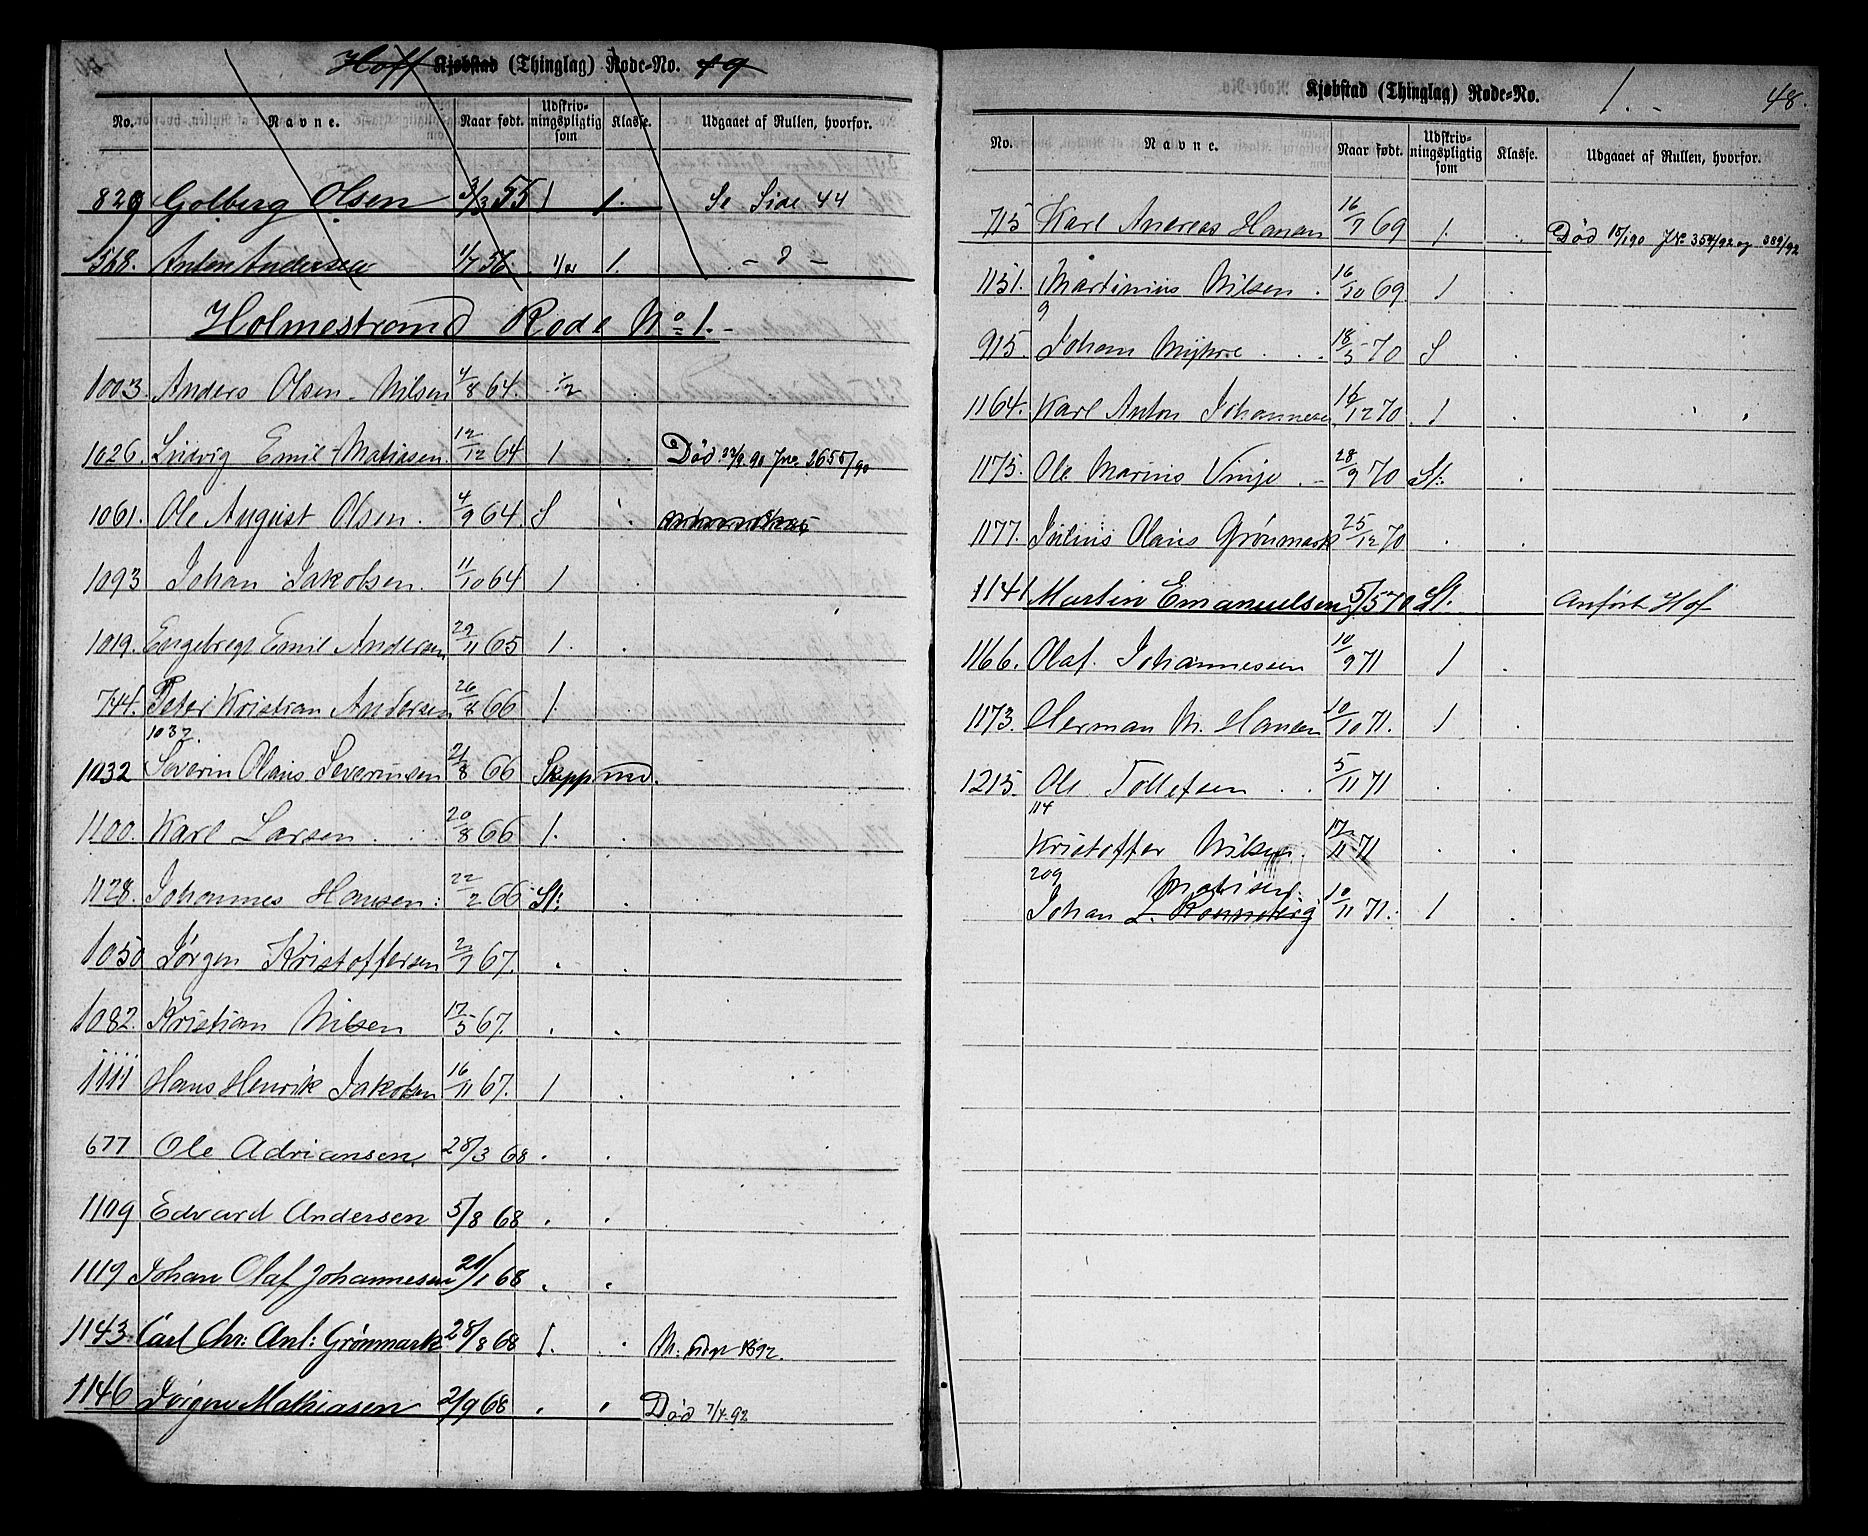 Hoff Kjøbstad (Thinglag) Rode-No. 49
No. Navne. Naar født. Udskrivningspligtig som Klasse. Udgaaet af Rullen, hvorfor.
829 Golberg Olsen 3/3 55 1 1. Se Side 44
568. Anton Andersen 1/7 56. 1/2 1. - " -
Holmestrand Rode No 1.-
1003. Anders Olsen-Nilsen 4/8 64. 1/2 .
1026. Ludvig Emil Matiesen 12/12 64 1 . Død 22/9 90 Jno. 2655/90
1061. Ole August Olsen. 4/9 64 S .
1093 Johan Jakobsen. 11/10 64 1 .
1019. Engebregt Emil Andersen 29/11 65 1. .
744. Peter Kristian Andersen 26/8 66 1. .
1032.
1032 Severin Olaus Severinsen 21/8 66
1100. Karl Larsen . . 20/8 66 1. .
1128. Johannes Hansen. 22/2 66 St: .
1050 Jørgen Kristoffersen 2/7 67. . .
1082. Kristian Nilsen 17/5 67. . .
1111 Hans Henrik Jakobsen 16/11 67. 1 .
677 Ole Adriansen. 28/3 68 . .
1109 Edvard Andersen 5/8 68 . .
1119 Johan Olaf Johannesen 21/1 68 . .
1143. Carl Chr: Ant: Grönmark 28/8 68 1. . 1892.
1146 Jørgen Mathiasen 2/9 68 . " Død 7/4 92
Kjøbstad (Thinglag) Rode-No. 1.- 48.
No. Navne. Naar født. Udskrivningspligtig som Klasse. Udgaaet af Rullen, hvorfor.
715 Karl Andreas Hansen 16/7 69 1. . Død 15/1 90 JNo 354/92 og 389/92
1151. Martinius Nilsen . 16/10 69 1 .
9
915. Johan Myhre . . . 18/5 70 S .
1164. Karl Anton Johannesen 16/12 70 1 .
1175. Ole Marius Vinje . - 28/9 70 St: .
1177. Julius Olaus Grönmark 25/12 70 . .
1141 Martin Emanuelsen 5/5 70 St. Anført Hof
1166. Olaf. Johannessen 10/9 71 1 .
1173. Herman M. Hansen 10/10 71. 1 .
1215. Ole Tollefsen . . 5/11 71 . .
114
Kristoffer Nilsen. 17/11 71 . .
209 Matisen.
Johan L. Ronneberg 10/11 71. 1 .